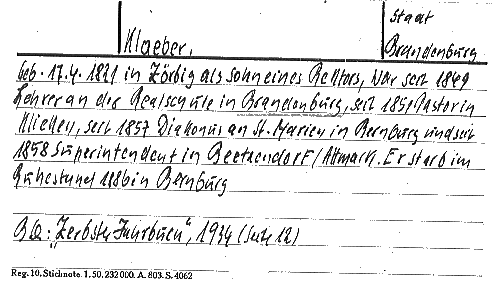 Klaeber,
Staat
Brandenburg
geb. 17.4.1821 in Zörbig als Sohn eines Rektors, war seit 1849
Lehrer an der Realschule in Brandenburg, seit 1851 Pastor in
Klieken, seit 1857 Diakonus an St. Marien in Bernburg und seit
1858 Superintendent in Beetzendorf/Altmark. Er starb im
Ruhestand 1886 in Bernburg
BQ: "Zerbster Jahrbuch", 1934 (Seite 12)
Reg. 10. Stichnote. 1. 50. 232000. A. 803. S. 4062